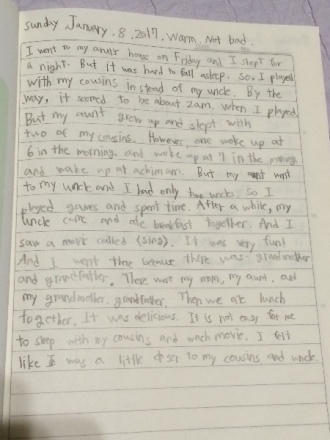 sunday January. 8. 2017. Warm, Not bad.
I went to my aunt's house on Friday and I slept for
a night. But it was hard to fall asleep. So, I played
with my cousins instead of my uncle. By the
way, it seemed to be about 2am. when I played
But my aunt up and slept with
two of my cousins. However one woke up at
6 in the morning. and woke up at 7 in the morning
and wake up at am. But my went
to my uncle and I had only two uncle, so I
played games and spent time. After a while, my
uncle came and ate breakfast together. And I
saw a movie called (sing). It was very fun!
And I went there because there was grandmother
and grandfather. There went my mom, my aunt. and
my grandmother, grandfather. Then we ate lunch
together. It was delicious. It is not easy for me
to sleep with my cousins and movie. I felt
like I was a little closer to my cousins and uncle.